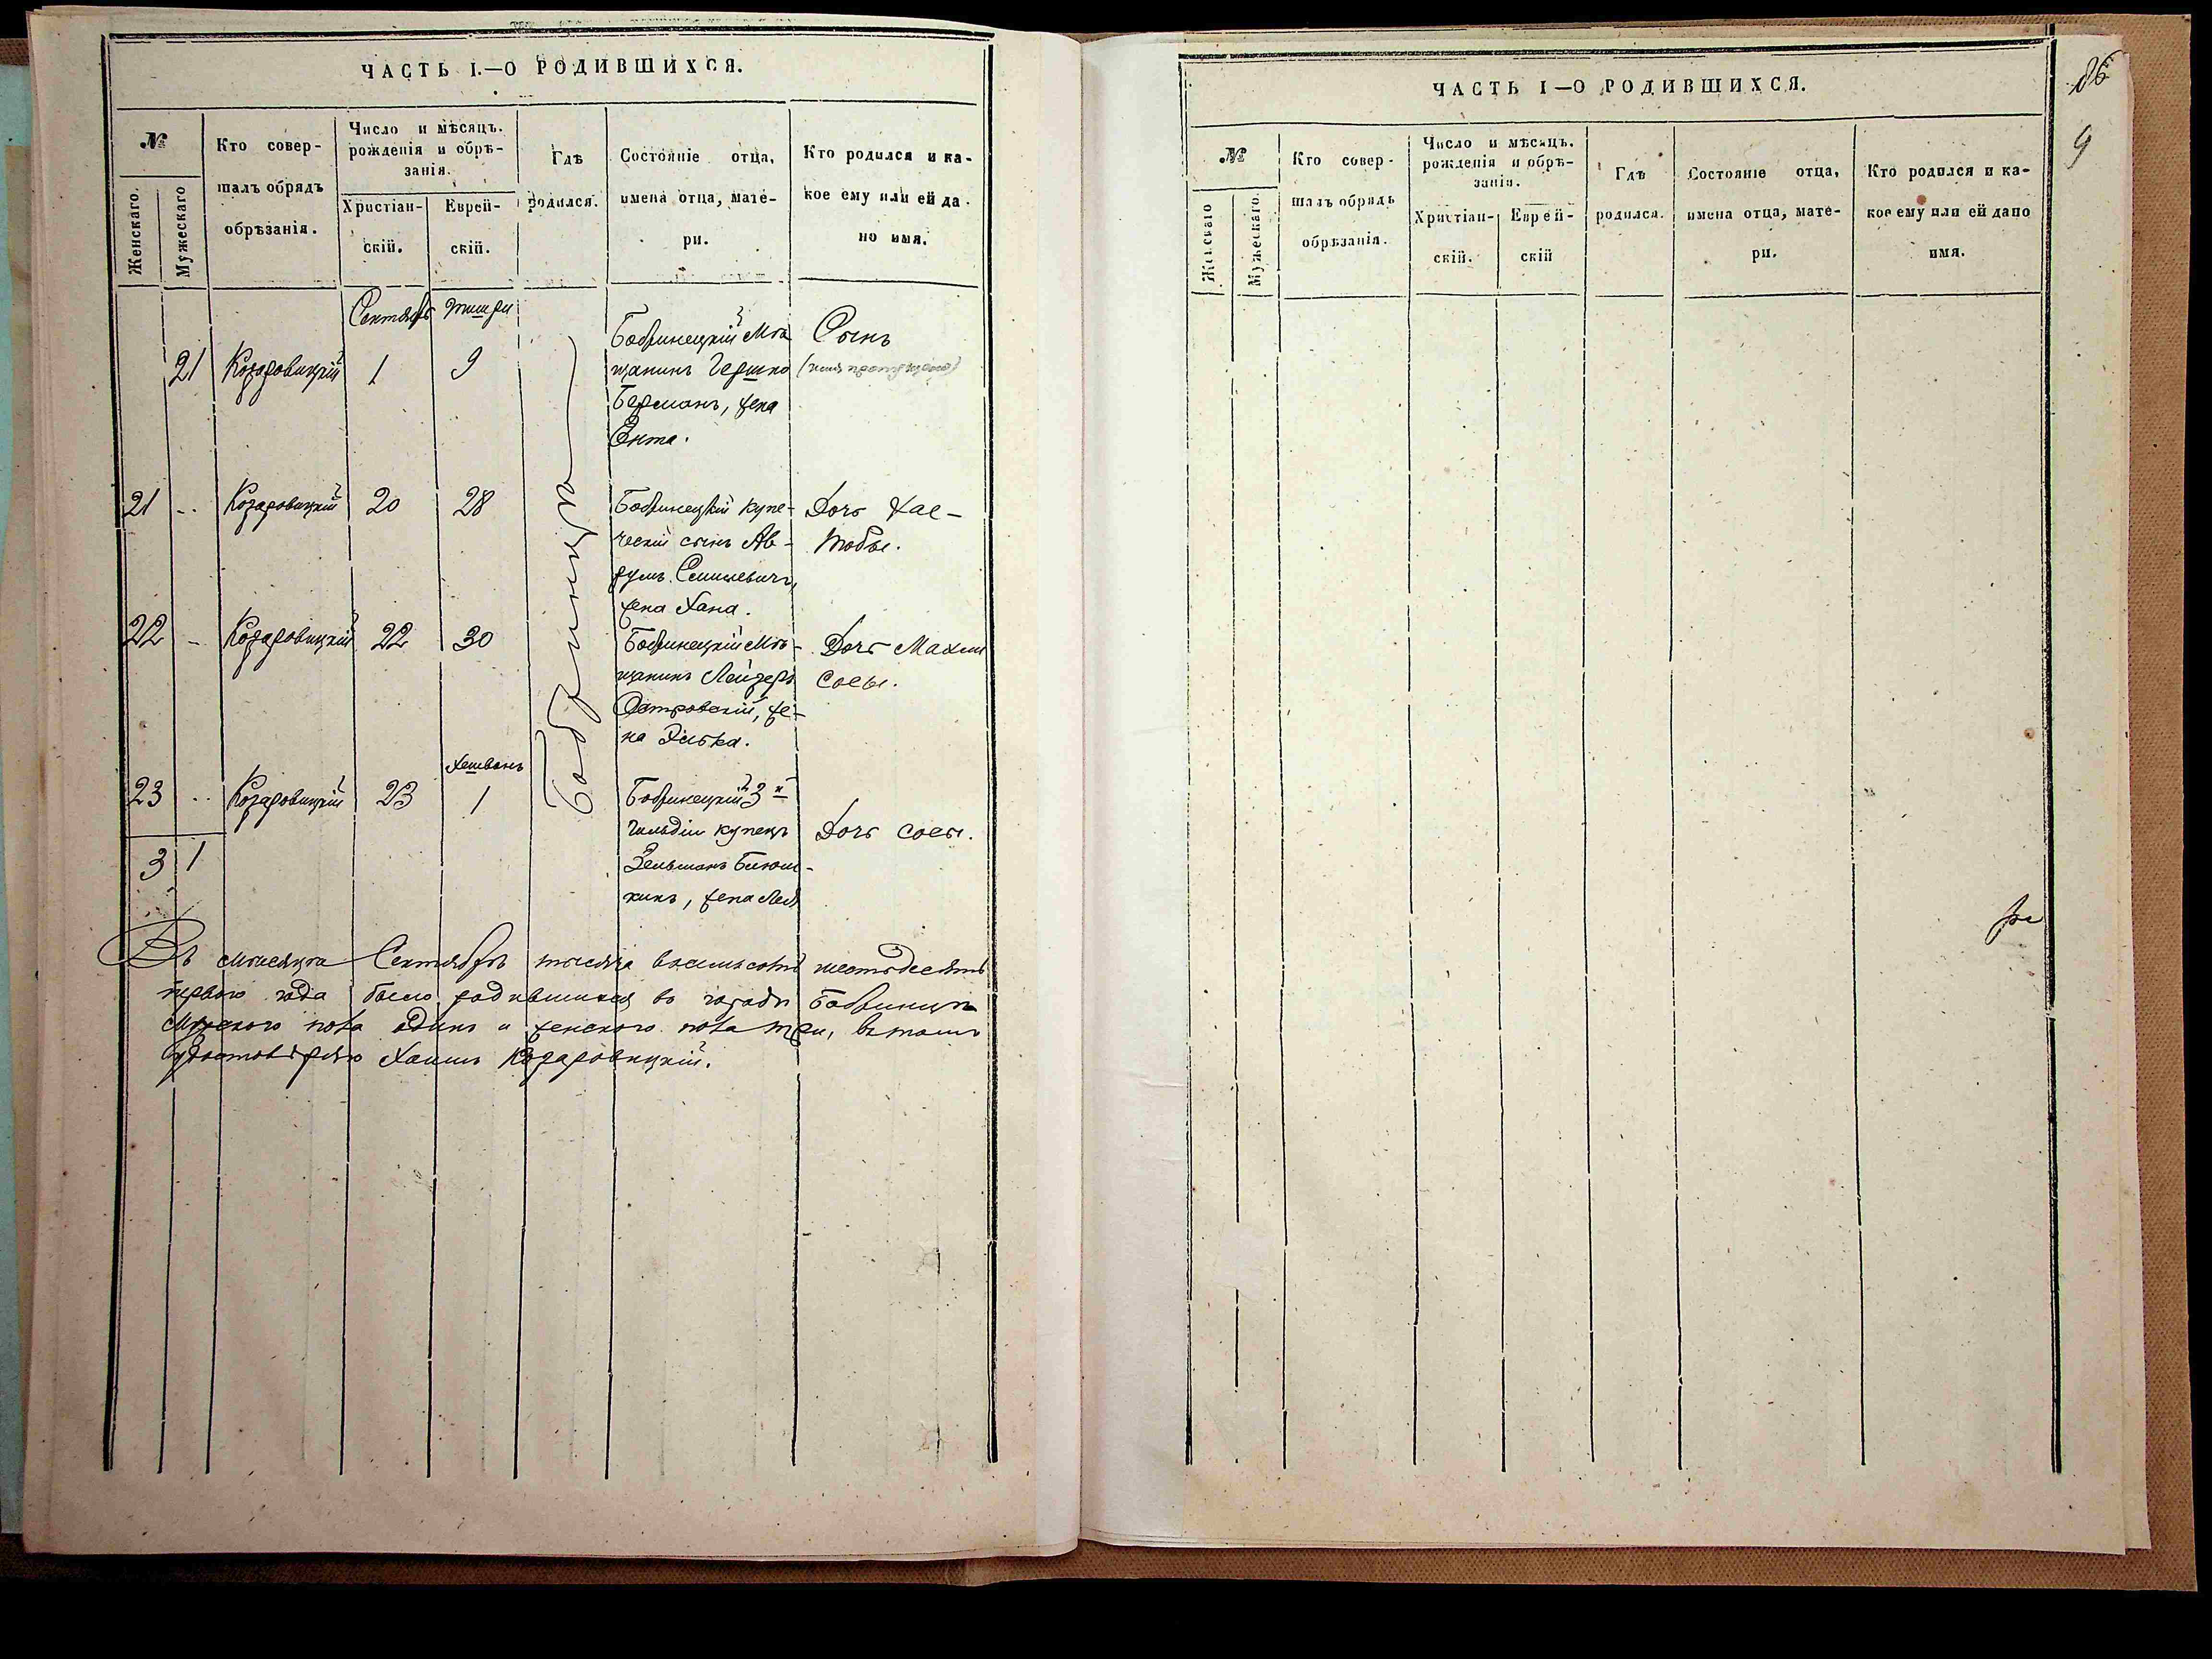 ЧАСТЬ I.—О РОДИВШИХСЯ.
№
Женскаго.
Мужескаго
Кто совер-
шалъ обрядъ
обрѣзанія.
Число и мѣсяцъ.
рожденія и обрѣ-
занія.
Христіан-
скій.
Еврей-
скій.
Гдѣ
родился.
Состояніе отца,
имена отца, мате-
ри.
Кто родился и ка-
кое ему или ей да
но имя.
Сентябрь Тишри
21 Козаровицкій 1 9
Бобринецкій Мѣ
щанинъ Гершко
Берманъ, жена
Ента.
Сынъ
Бобринецъ
21 - Козаровицкій 20 28
Бобринецкій купе-
ческій сынъ Ав-
румъ
жена Хана.
Дочь Хае-
Тобы.
22 - Козаровицкій 22 30
Бобринецкій Мѣ-
щанинъ Лейзеръ
Островскій, же-
на
Дочь
Сосы.
Хешванъ
23 - Козаровицкій 23 1
Бобринецкій 3й
Гильдіи купецъ
Зельманъ
жена Лея
Дочь Сосы.
3 1
Въ мѣсяцѣ Сентябрѣ тысяча восемьсотъ шестьдесятъ
перваго года было родившихся въ городѣ Бобринцѣ
Мужского пола одинъ и женского пола три, въ томъ
удостовѣряю Хаимъ Козаровицкій.
ЧАСТЬ I—О РОДИВШИХСЯ.
№
Женскаго
Мужескаго.
Кто совер-
шалъ обрядъ
обрѣзанія.
Число и мѣсяцъ.
рожденія и обрѣ-
занія.
Христіан-
скій.
Еврей-
скій
Гдѣ
родился.
Состояніе отца,
имена отца, мате-
ри.
Кто родился и ка-
кое ему или ей дано
имя.
9